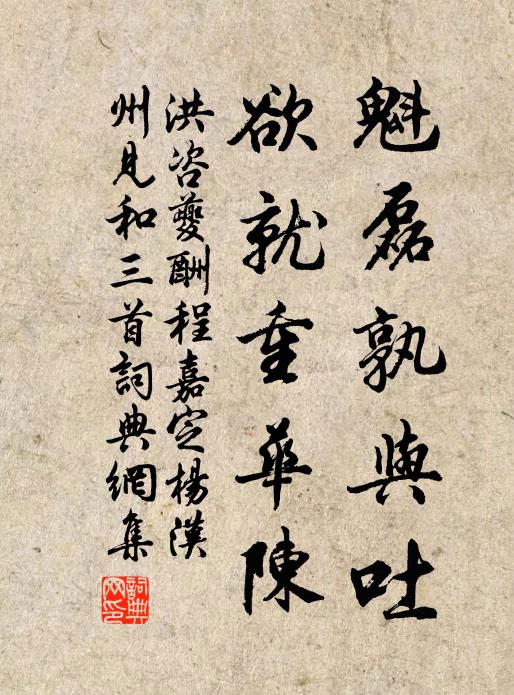 魁磊孰與吐
欲就重華陳
洪咨夔酬程嘉定楊漢
州見和三首詞典網集
詞典網印